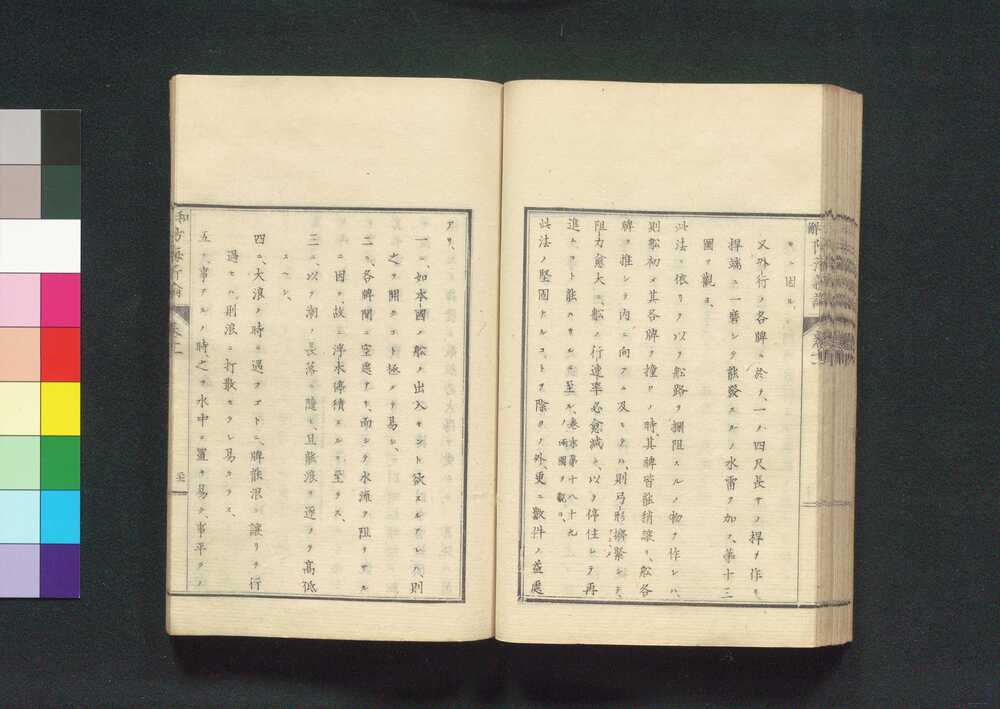 モニ因ル、
又外行ノ各牌ニ於テ、一ノ四尺長サノ捍ヲ作リ
捍端ニ一磨シテ能發スルノ水雷ヲ加フ、第十三
圖ヲ觀ヨ、
此法ニ依リテ以テ舩路ヲ攔阻スルノ物ヲ作レハ、
則舩初メ其各牌ヲ撞クノ時、其牌皆能稍讓リ、舩各
牌ヲ推シテ内ニ向フルニ及ヒテハ、則弓形擠緊シテ、
阻力愈大ニ、舩ノ行速率必愈減シ、以テ停住シテ再
進ムコト能ハサルニ至ル、卷末第十八十九ノ兩圖ヲ觀ヨ、
此法ノ堅固トルコトヲ除クノ外、更ニ數件ノ益處
アリ、
一ニ、如本國ノ舩ノ出入セント欲スルアレハ、則
之ヲ開クコト極メテ易シ、
二ニ、各牌間ニ空處アリ、而シテ水流ヲ阻リサル
ニ因テ、故ニ浮水停積スルニ至ラス、
三ニ、以テ潮ノ長落ニ隨ヒ、且能浪ヲ逐フテ高低
スヘシ、
四ニ、大浪ノ時ニ遇フゴトニ、牌能浪ニ讓リテ行
過セハ、則浪ニ打散セラレ易カラス、
五ニ、事アルノ時、之ヲ水中ニ置キ易ク、事平クノ
卷二